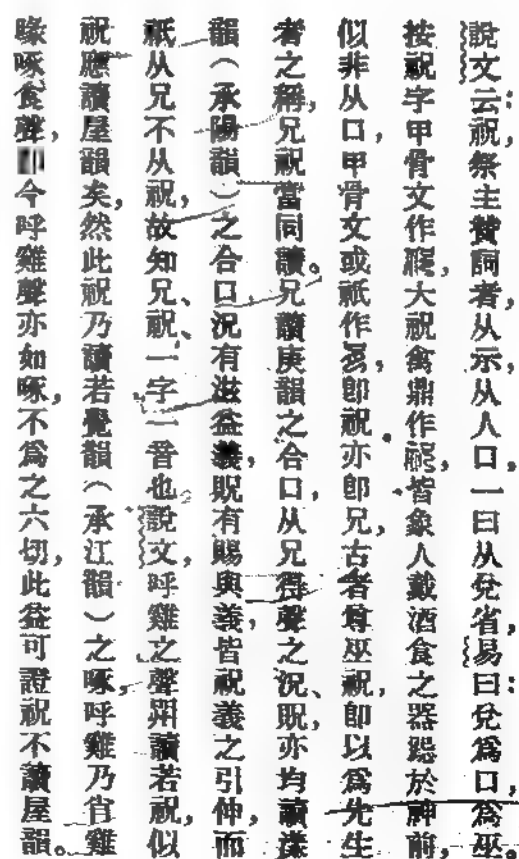 說文云：祝，祭主贊詞者，从示，从人口，一曰从兌省，易曰：兌爲口，爲巫。
按祝字甲骨文作，大祝禽鼎作，皆象人戴酒食之器跽於神前，
似非从口，甲骨文或祇作，卽祝。亦卽兄，古者尊巫祝，卽以爲先生
者之稱，兄祝當同讀。兄讀庚韻之合口，从兄得聲之況、貺，亦均讀漾
韻（承陽韻）之合口，況有滋益義，貺有賜與義，皆祝義之引伸，而
祇从兄不从祝，故知兄、祝、一字一音也說文，呼雞之聲㗊讀若祝，似
祝應讀屋韻矣，然此祝乃讀若覺韻（承江韻）之啄，呼雞乃肖雞
喙啄食聲，卽今呼雞聲亦如啄，不爲之六切，此益可證祝不讀屋韻。